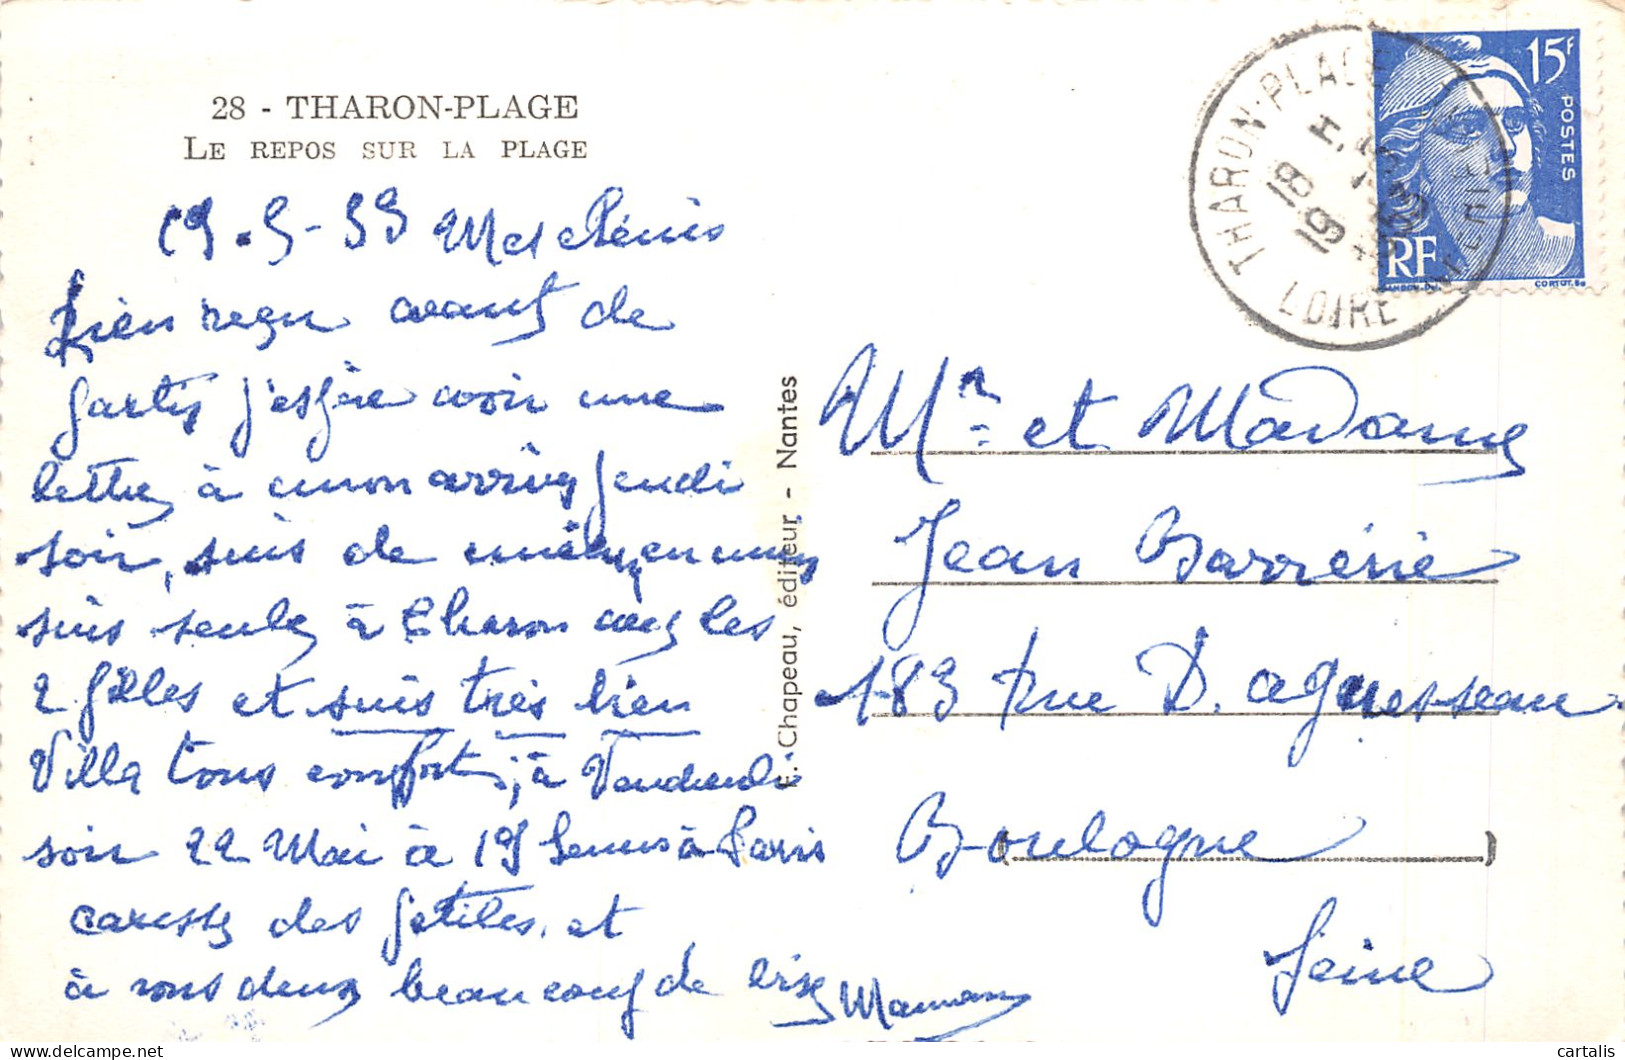 28 - THARON-PLAGE
LE REPOS SUR LA PLAGE
19-5-53 Mes chéris
bien reçu avant de
partir j'espère avoir une
lettre à mon arrivée jeudi
soir, suis de
suis seule à Tharon avec les
2 filles et suis très bien
Villa tous confort, à Vendredi
soir 22 Mai à 19 heures à Paris
caresses des petites, et
à vous deux beaucoup de bises Maman
E. Chapeau, éditeur - Nantes
THARON-PLAGE
18 H
19
LOIRE INFRE
15F
POSTES
RF
GANDON.DEL
CORTOT.SC
Mr et Madame
Jean Barrérie
183 rue D. aguesseau
Boulogne
Seine
cartalis